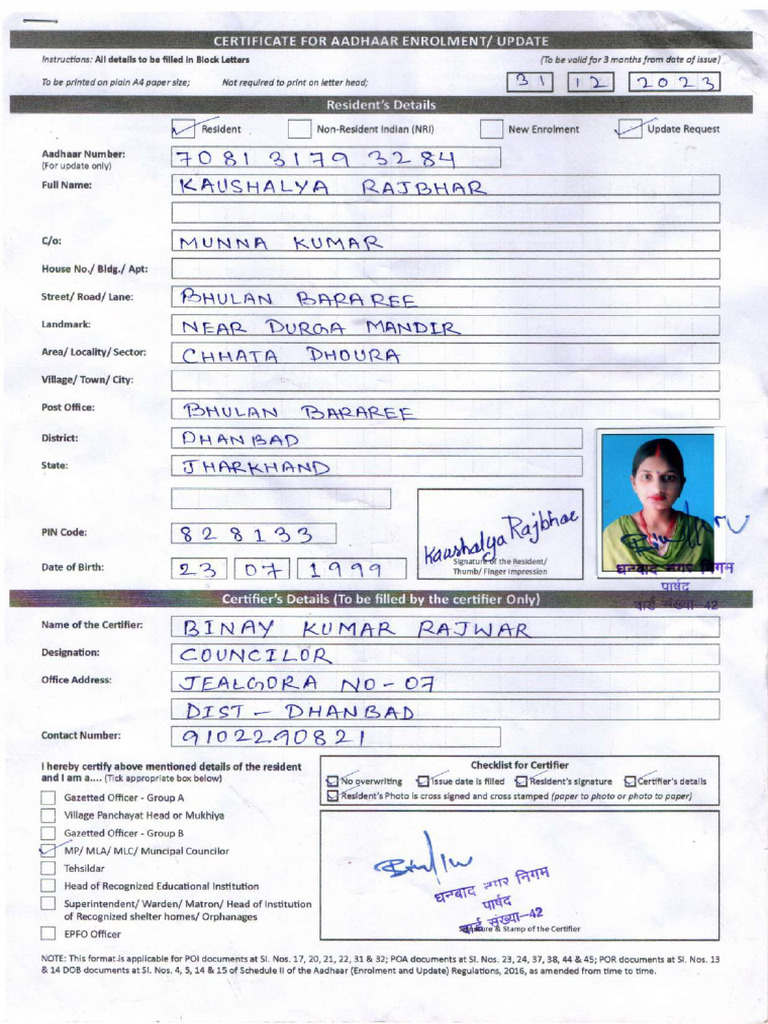 CERTIFICATE FOR AADHAAR ENROLMENT/ UPDATE
Instructions: All details to be filled in Block Letters (To be valid for 3 months from date of issue)
To be printed on plain A4 paper size; Not required to print on letter head; 31 12 2023
Resident's Details
Resident Non-Resident Indian (NRI) New Enrolment Update Request
Aadhaar Number: 7081 3179 3284
(For update only)
Full Name: KAUSHALYA RAJBHAR
C/o: MUNNA KUMAR
House No./ Bldg./ Apt:
Street/ Road/ Lane: BHULAN BARAREE
Landmark: NEAR DURGA MANDIR
Area/ Locality/ Sector: CHHATA DHOURA
Village/ Town/ City:
Post Office: BHULAN BARAREE
District: DHANBAD
State: JHARKHAND
PIN Code: 828133
Kaushalya Rajbhar
Signature of the Resident/
Thumb/ Finger Impression
Date of Birth: 23 07 1999
धनबाद नगर निगम
पार्षद
वार्ड संख्या-42
Certifier's Details (To be filled by the certifier Only)
Name of the Certifier: BINAY KUMAR RAJWAR
Designation: COUNCILOR
Office Address: JEALGORA NO-07
DIST - DHANBAD
Contact Number: 9102290821
I hereby certify above mentioned details of the resident
and I am a.... (Tick appropriate box below)
Gazetted Officer - Group A
Village Panchayat Head or Mukhiya
Gazetted Officer - Group B
MP/ MLA/ MLC/ Muncipal Councilor
Tehsildar
Head of Recognized Educational Institution
Superintendent/ Warden/ Matron/ Head of Institution
of Recognized shelter homes/ Orphanages
EPFO Officer
Checklist for Certifier
No overwriting Issue date is filled Resident's signature Certifier's details
Resident's Photo is cross signed and cross stamped (paper to photo or photo to paper)
धनबाद नगर निगम
पार्षद
वार्ड संख्या-42
Signature & Stamp of the Certifier
NOTE: This format is applicable for POI documents at Sl. Nos. 17, 20, 21, 22, 31 & 32; POA documents at Sl. Nos. 23, 24, 37, 38, 44 & 45; POR documents at Sl. Nos. 13
& 14 DOB documents at Sl. Nos. 4, 5, 14 & 15 of Schedule II of the Aadhaar (Enrolment and Update) Regulations, 2016, as amended from time to time.